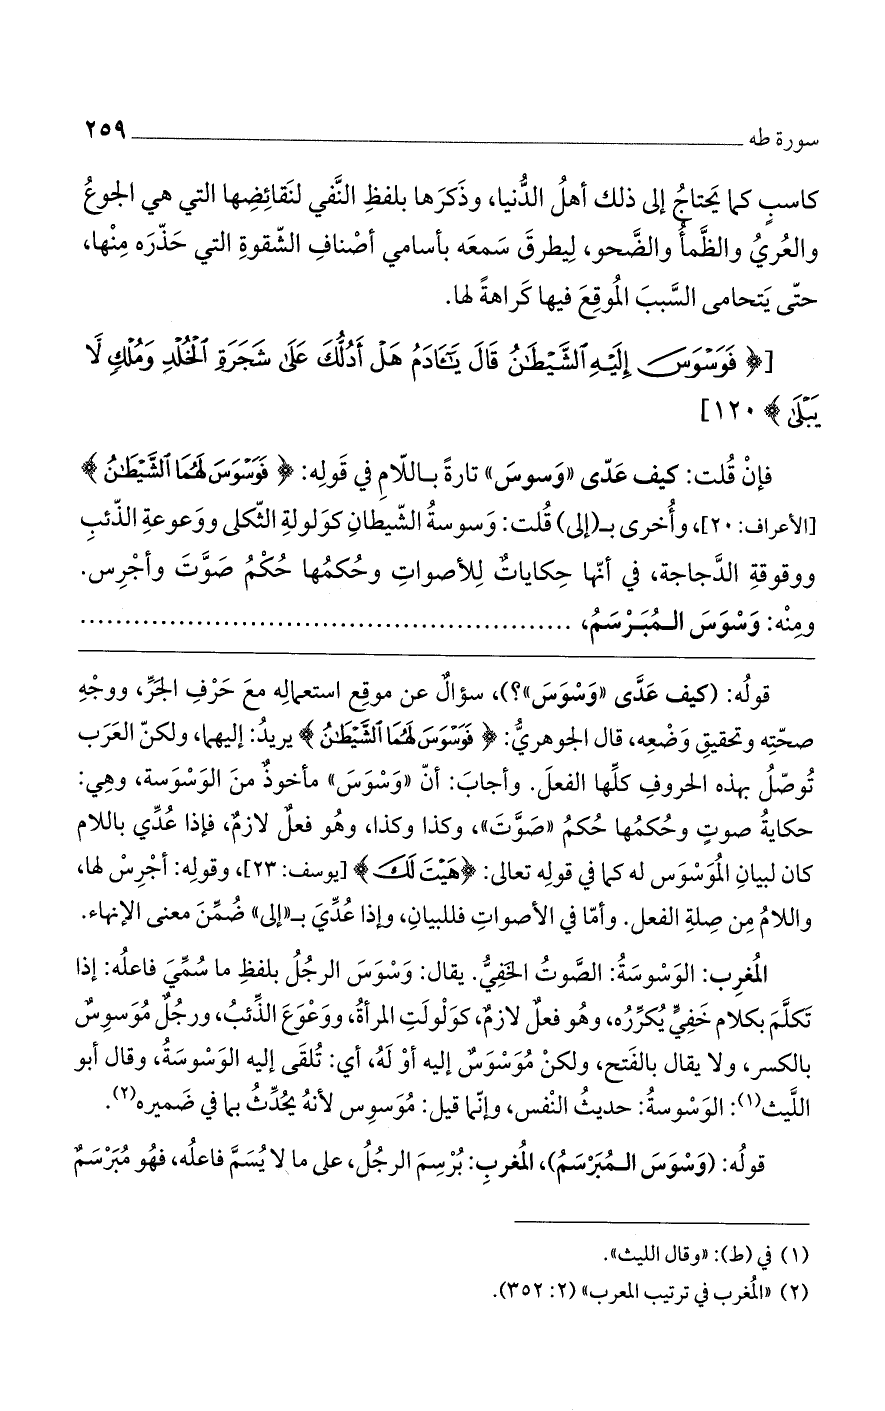 سورة طه ٢٥٩
كاسبٍ كما يَحتاجُ إلى ذلك أهلُ الدُّنيا، وذَكرَها بلفظِ النَّفي لنَقائِضِها التي هي الجوعُ
والعُريُ والظَّمأُ والضَّحو، لِيطرقَ سَمعَه بأسامي أصْنافِ الشّقوةِ التي حَذّرَه مِنْها،
حتّى يَتحامى السَّببَ المُوقِعَ فيها كَراهةً لها.
[﴿ فَوَسْوَسَ إِلَيْهِ ٱلشَّيْطَٰنُ قَالَ يَٰٓـَٔادَمُ هَلْ أَدُلُّكَ عَلَىٰ شَجَرَةِ ٱلْخُلْدِ وَمُلْكٍ لَّا
يَبْلَىٰ ﴾ ١٢٠]
فإنْ قُلت: كيف عَدّى «وَسوسَ» تارةً بـاللّامِ في قَولِه: ﴿ فَوَسْوَسَ لَهُمَا ٱلشَّيْطَٰنُ ﴾
[الأعراف: ٢٠]، وأُخرى بـ(إلى) قُلت: وَسوسةُ الشّيطانِ كوَلولةِ الثّكلى ووَعوعةِ الذّئبِ
ووقوقةِ الدَّجاجة، في أنّها حِكاياتٌ لِلأصواتِ وحُكمُها حُكْمُ صَوَّتَ وأجْرس.
ومِنْه: وَسْوَسَ الـمُبَـرْسَمُ، ......................................................
قولُه: (كيف عَدَّى «وَسْوَسَ»؟)، سؤالٌ عن موقِعِ استعمالِه معَ حَرْفِ الجَرِّ، ووجْهِ
صحّتِه وتحقيقِ وَضْعِه، قال الجوهريُّ: ﴿ فَوَسْوَسَ لَهُمَا ٱلشَّيْطَٰنُ ﴾ يريدُ: إليهما، ولكنّ العَرَب
تُوصّلُ بهذه الحروفِ كلِّها الفعلَ. وأجابَ: أنّ «وَسْوَسَ» مأخوذٌ منَ الوَسْوَسة، وهِي:
حكايةُ صوتٍ وحُكمُها حُكمُ «صَوَّتَ»، وكذا وكذا، وهُو فعلٌ لازمٌ، فإذا عُدِّي باللام
كان لبيانِ المُوَسْوَس له كما في قولِه تعالى: ﴿هَيْتَ لَكَ﴾ [يوسف: ٢٣]، وقولِه: أجْرِسْ لها،
واللامُ مِن صِلةِ الفعل. وأمّا في الأصواتِ فللبيانِ، وإذا عُدِّيَ بـ«إلى» ضُمِّنَ معنى الإنهاء.
المُغرِب: الوَسْوسَةُ: الصَّوتُ الخَفِيُّ. يقال: وَسْوَسَ الرجلُ بلفظِ ما سُمِّيَ فاعلُه: إذا
تَكلَّمَ بكلام خَفِيٍّ يُكرِّرُه، وهُو فعلٌ لازمٌ، كوَلْولَتِ المرأةُ، ووَعْوَعَ الذِّئبُ، ورجُلٌ مُوَسوِسٌ
بالكسر، ولا يقال بالفَتح، ولكنْ مُوَسْوَسٌ إليه أوْ لَهُ، أي: تُلقَى إليه الوَسْوسَةُ، وقال أبو
اللَّيث(١): الوَسْوسةُ: حديثُ النفْس، وإنّما قيل: مُوَسوِس لأنهُ يُحَدِّثُ بما في ضَميره(٢).
قولُه: (وَسْوَسَ الـمُبَرْسَمُ)، المُغربِ: بُرْسِمَ الرجُلُ، على ما لا يُسَمَّ فاعلُه، فهُو مُبَرْسَمٌ
(١) في (ط): «وقال الليث».
(٢) «المُغرب في ترتيب المعرب» (٢: ٣٥٢).